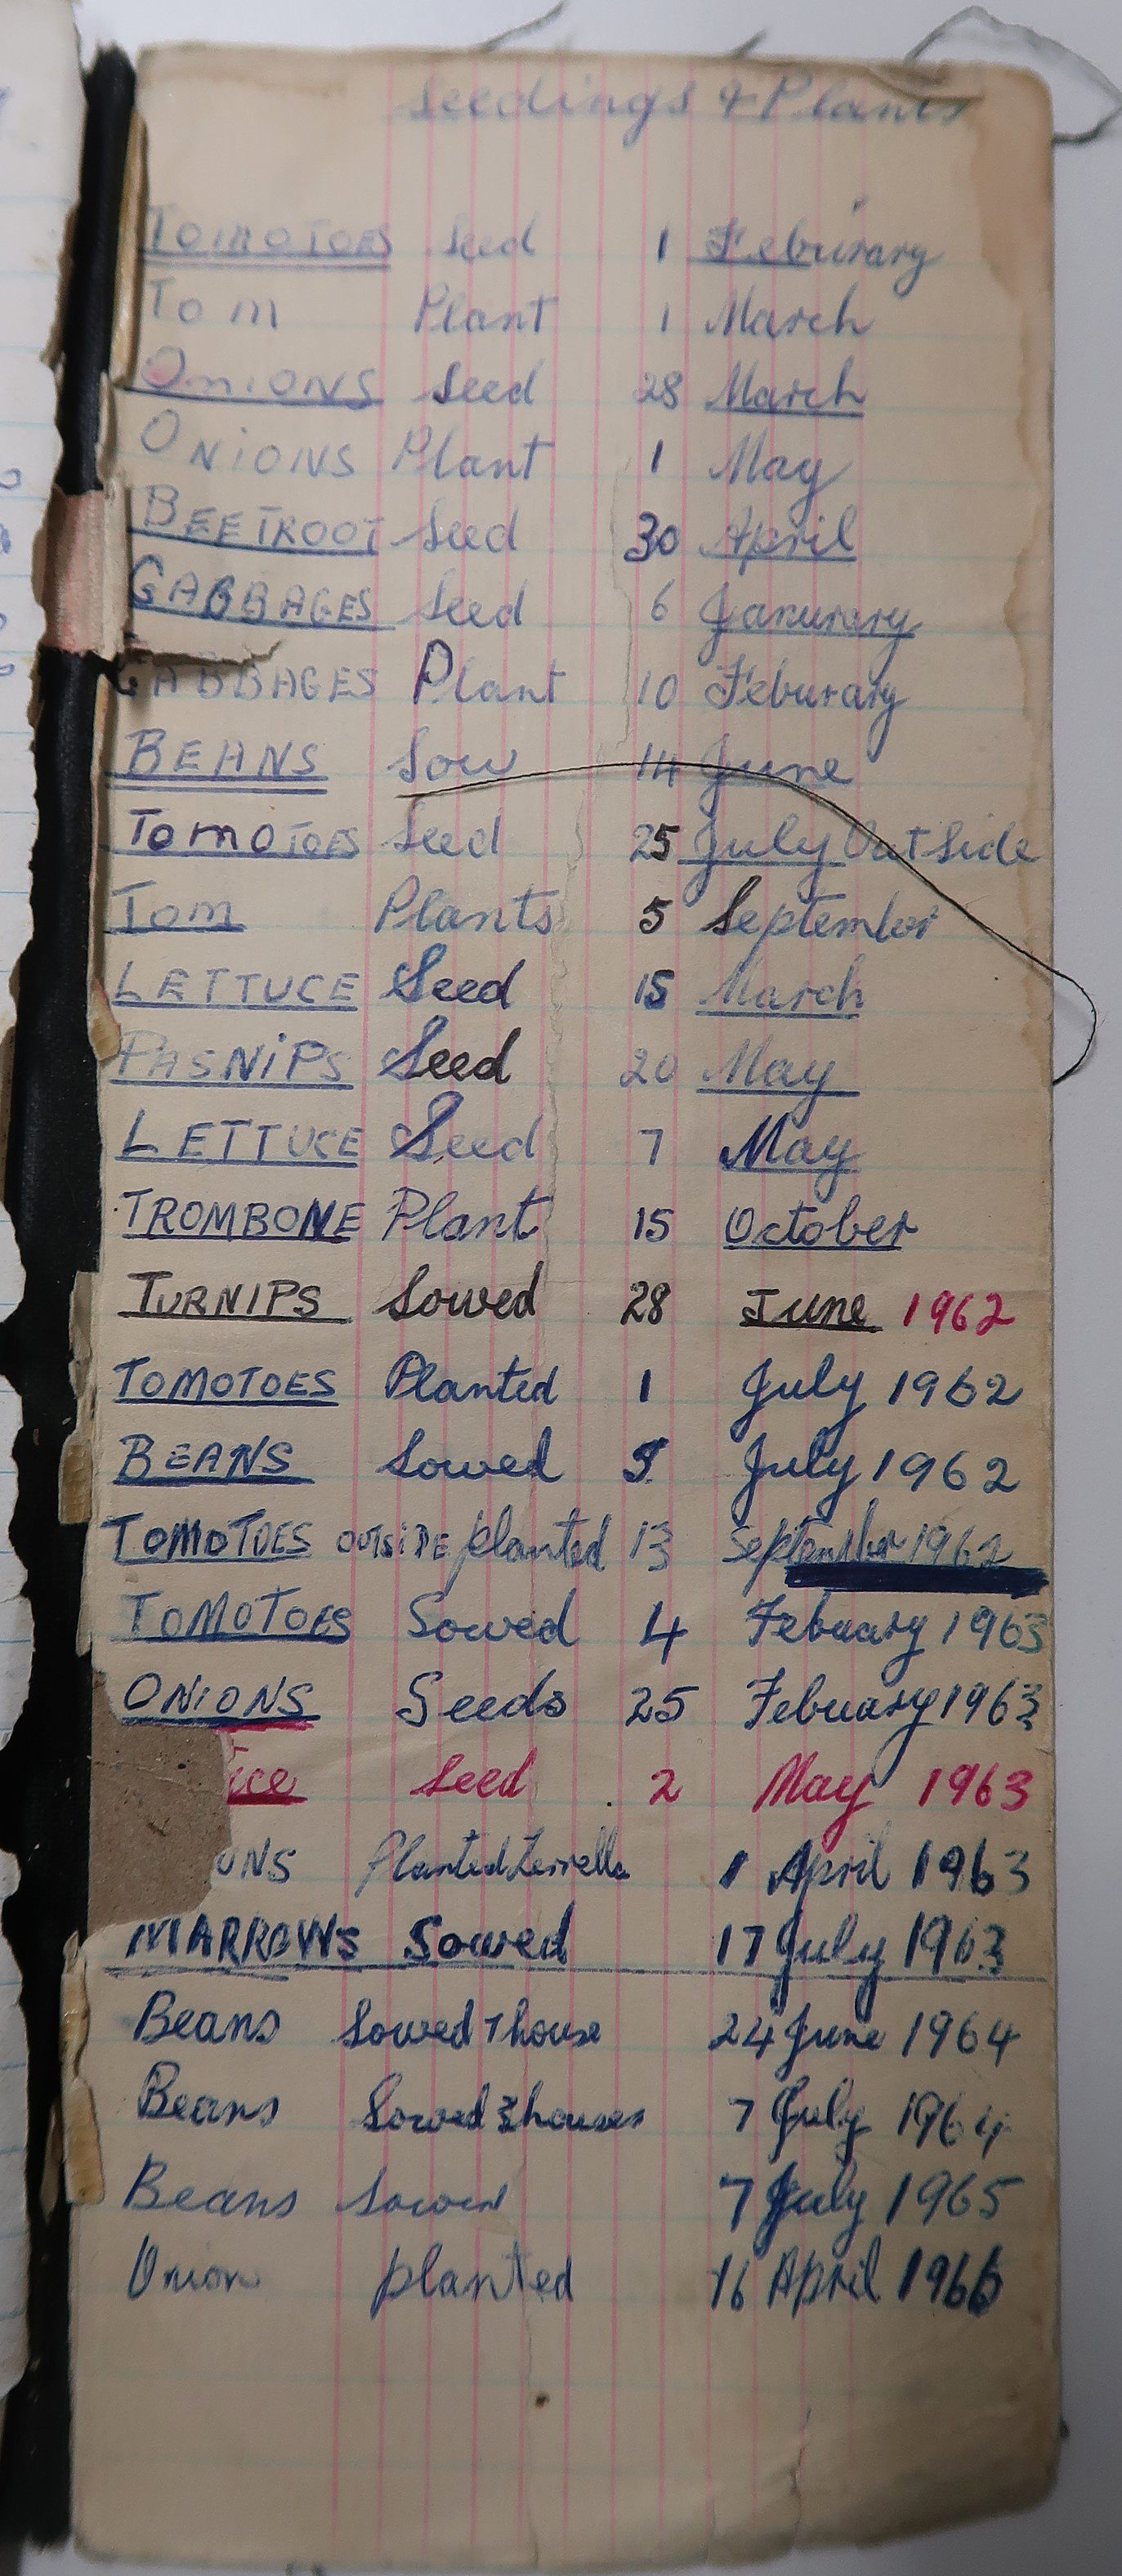 Seedings & Plants
TOMOTOES Seed 1 Feburary
Tom Plant 1 March
ONIONS Seed 28 March
ONIONS Plant 1 May
BEETROOT Seed 30 April
GABBAGES Seed 6 Janurary
GABBAGES Plant 10 Feburary
BEANS Sow 14 June
TomOTOES Seed 25 July OutSide
Tom Plants 5 September
LETTUCE Seed 15 March
PASNiPS Seed 20 May
LETTUCE Seed 7 May
TROMBONE Plant 15 October
TURNIPS Sowed 28 June 1962
TOMOTOES Planted 1 July 1962
BEANS Sowed July 1962
TOMOTOES OUTSiDE planted 13 September 1962
TOMOTOES Sowed 4 Febuary 1963
ONIONS Seeds 25 Febuary 1963
ice Seed 2 May 1963
ONS Planted 1 April 1963
MARROWS Sowed 17 July 1963
Beans Sowed 1 house 24 June 1964
Beans Sowed 3 houses 7 July 1964
Beans Sowed 7 July 1965
Onion planted 16 April 1966